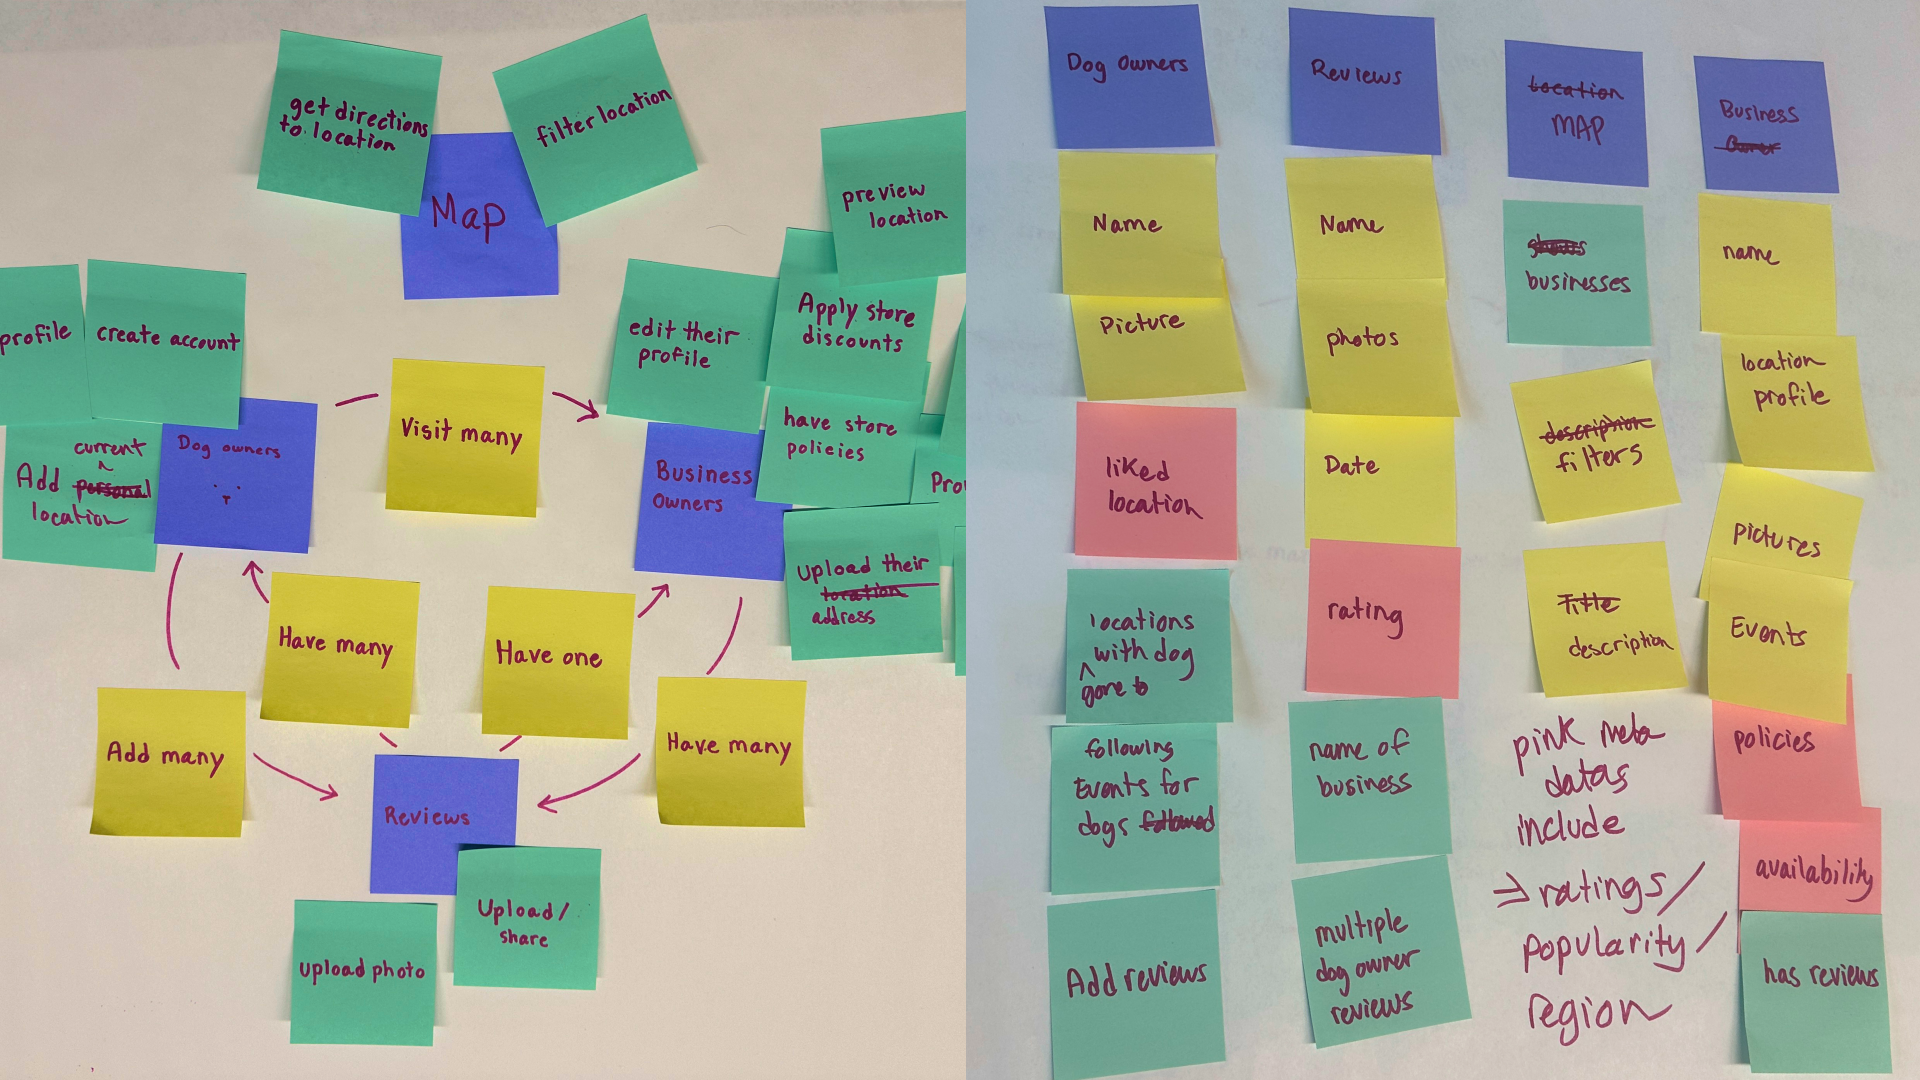 get directions
to location
filter location
Map
preview
location
profile
create account
edit their
profile
Apply store
discounts
Visit many
have store
policies
Dog owners
current
Add personal
location
Business
Owners
Pro
Upload their
location
address
Have many
Have one
Add many
Have many
Reviews
Upload/
share
upload photo
Dog Owners
Name
Picture
liked
location
locations
with dog
gone to
following
Events for
dogs followed
Add reviews
Reviews
Name
photos
Date
rating
name of
business
multiple
dog owner
reviews
Location
MAP
businesses
description
filters
Title
description
pink meta
datas
include
⇒ ratings/
popularity/
region
Business
Owner
name
location
profile
pictures
Events
policies
availability
has reviews